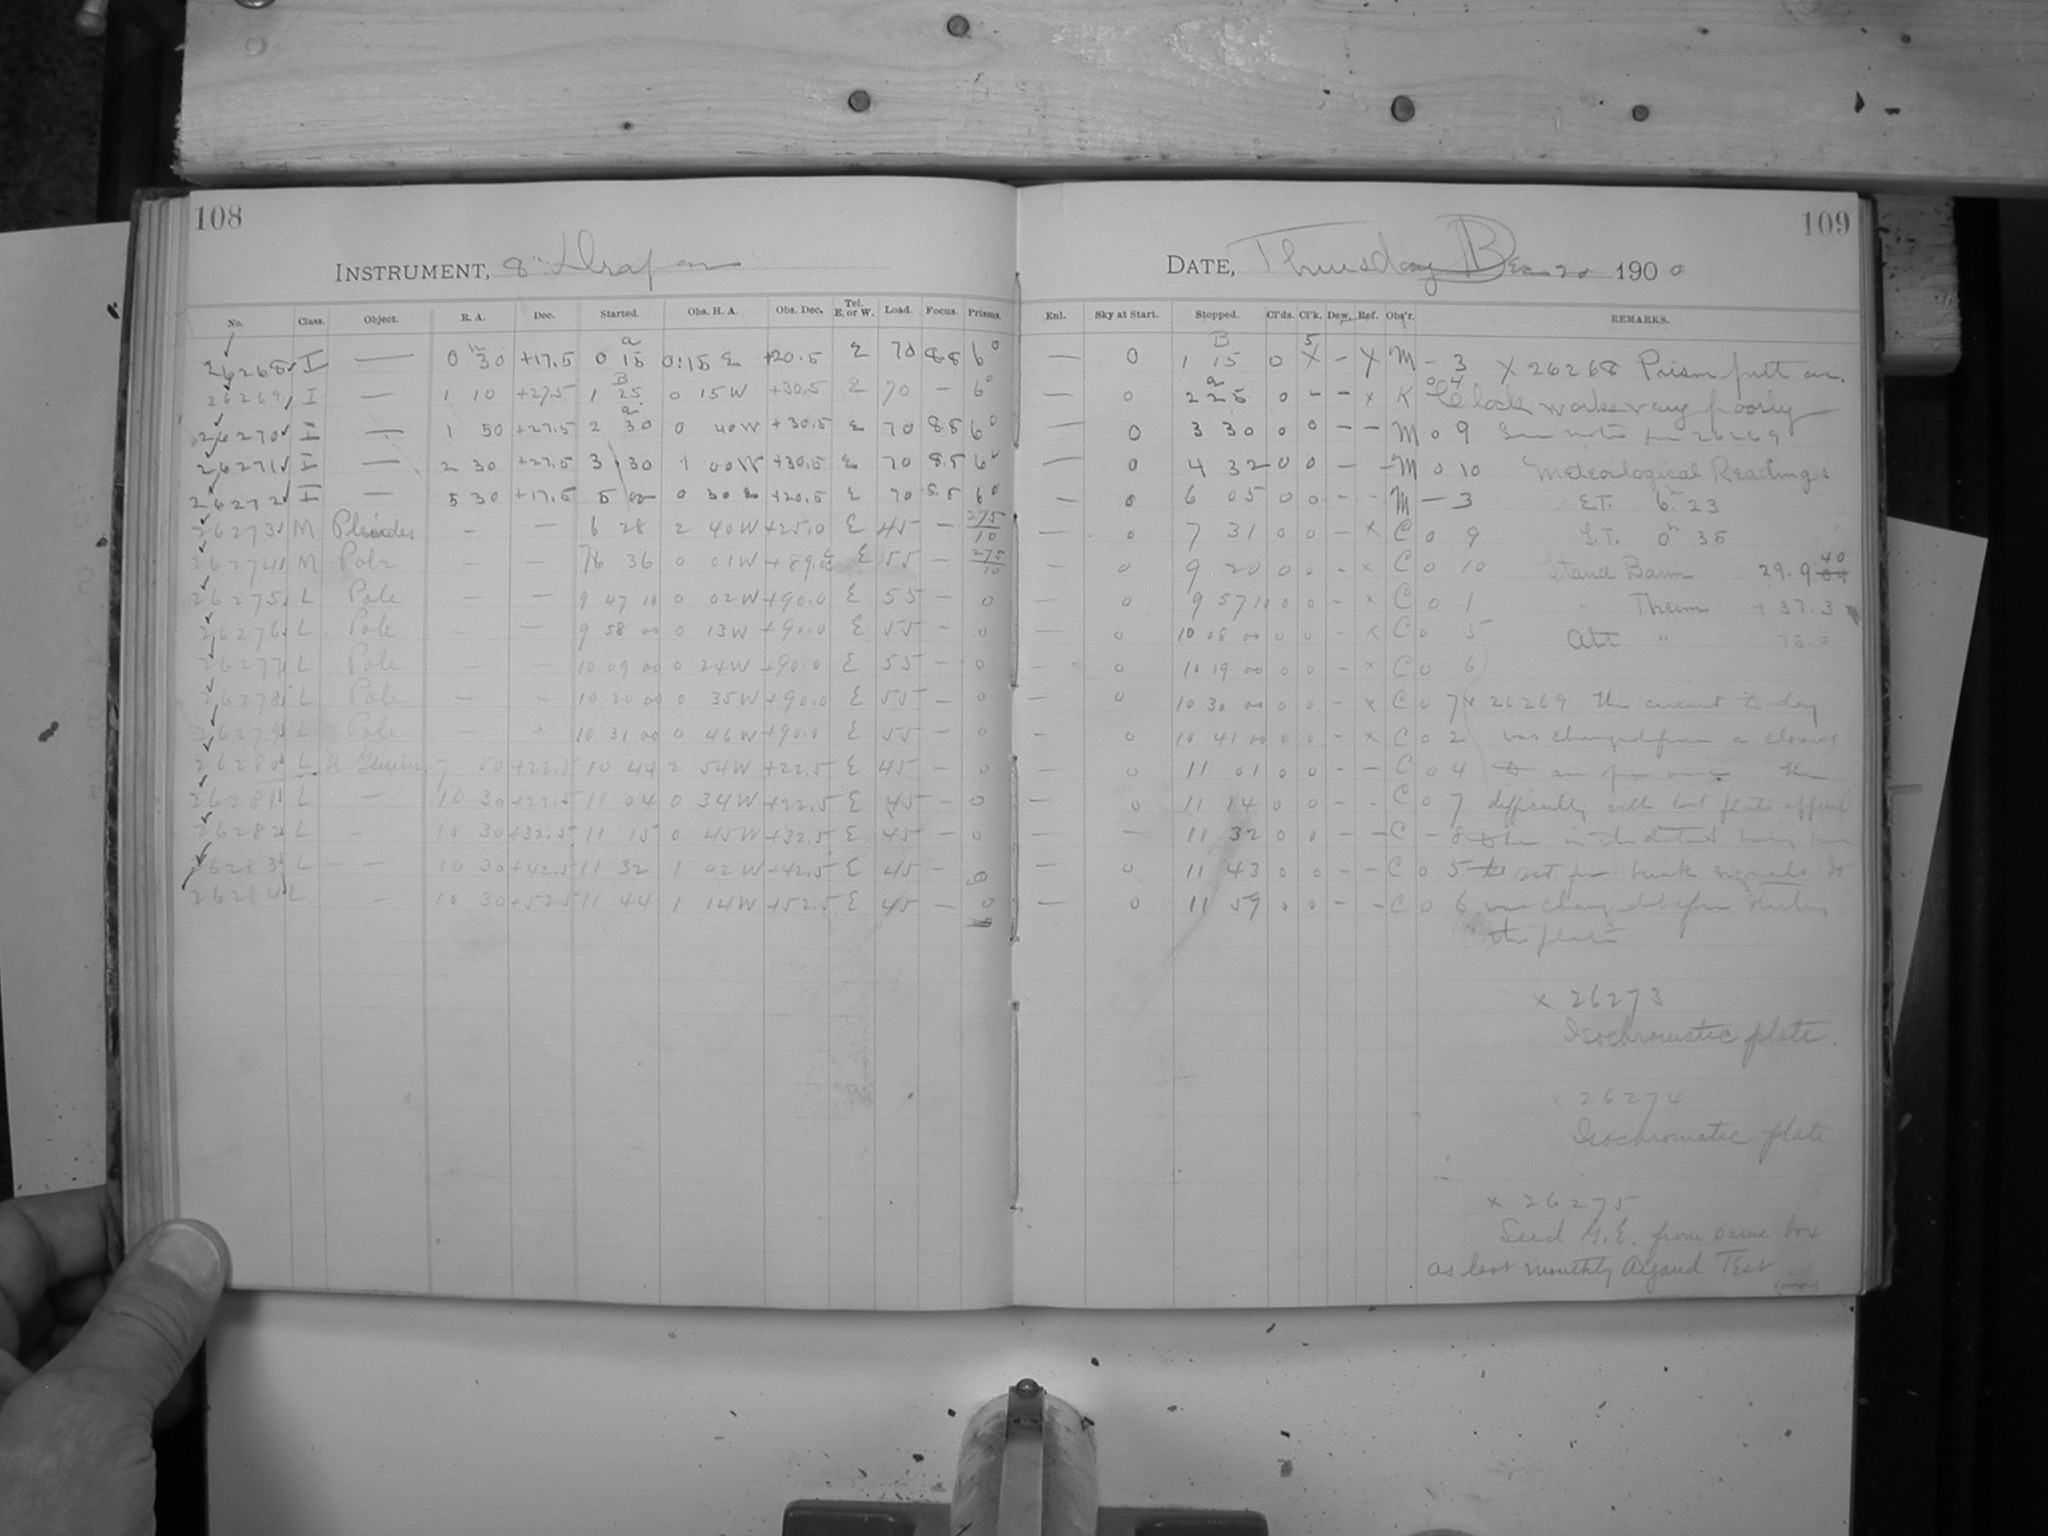 108
INSTRUMENT, 8" Draper
No. Class. Object. R. A. Dec. Started. Obs. H. A. Obs. Dec. Tel. E. or W. Load. Focus. Prisms.
26268 I — 0 30 +17.5 0 15 0:15 E +20.5 E 70 8.8 6°
26269 I — 1 10 +27.5 1 25 0 15W +30.5 E 70 — 6°
26270 I — 1 50 +27.5 2 30 0 40W +30.5 E 70 8.5 6°
26271 I — 2 30 +27.5 3 30 1 00W +30.5 E 70 8.5 6°
26272 I — 5 30 +17.5 5 00 0 30E +20.5 E 70 8.5 6°
26273 M Pleiades — — 6 28 2 40W +25.0 E 45 — 275/10
26274 M Pole — — 36 0 01W E 55 — 275/10
26275 L Pole — — 9 47 10 0 02W +90.0 E 55 — 0
26276 L Pole — — 9 58 00 0 13W +90.0 E 55 — 0
26277 L Pole — — 10 09 00 0 24W +90.0 E 55 — 0
26278 L Pole — — 10 20 00 0 35W +90.0 E 55 — 0
26279 L Pole — — 10 31 00 0 46W +90.0 E 55 — 0
26280 L U Gemin. 7 50 +22.5 10 44 2 54W +22.5 E 45 — 0
26281 L — 10 30 +22.5 11 04 0 34W +22.5 E 45 — 0
26282 L — 10 30 +32.5 11 15 0 45W +32.5 E 45 — 0
26283 L — 10 30 +42.5 11 32 1 02W +42.5 E 45 — 0
26284 L — 10 30 +52.5 11 44 1 14W +52.5 E 45 — 0
109
DATE, Thursday Dec 20 1900
Enl. Sky at Start. Stopped. Cl'ds. Cl'k. Dew. Ref. Obs'r. REMARKS.
— 0 1 15 0 X — X M — 3 X 26268 Prism put on.
— 0 2 25 0 — — x K 0 4 Clock works very poorly
— 0 3 30 0 0 — — M 0 9 See note for 26269
— 0 4 32 0 0 — — M 0 10 Meteorological Readings
— 0 6 05 0 0 — — M — 3 E.T. 6h 23
— 0 7 31 0 0 — x C 0 9 S.T. 0h 35
— 0 9 20 0 0 — x C 0 10 Stand Barom 29.940
— 0 9 57 10 0 0 — x C 0 1 " Therm + 37.3
— 0 10 08 00 0 0 — x C 0 5 Att "
— 0 10 19 00 0 0 — x C 0 6
— 0 10 30 00 0 0 — x C 0 7 x 26269 The current to-day
— 0 10 41 00 0 0 — x C 0 2 was changed from a closed
— 0 11 01 0 0 — — C 0 4 to an open one. The
— 0 11 14 0 0 — — C 0 7 difficulty with last plate
— — 11 32 0 0 — — C — 8 in the
— 0 11 43 0 0 — — C 0 5 set for break signals It
— 0 11 59 0 0 — — C 0 6 was changed before starting
this plate
x 26273
Isochromatic plate.
x 26274
Isochromatic plate.
x 26275
Seed G.E. from same box
as last monthly Argand Test
(over)